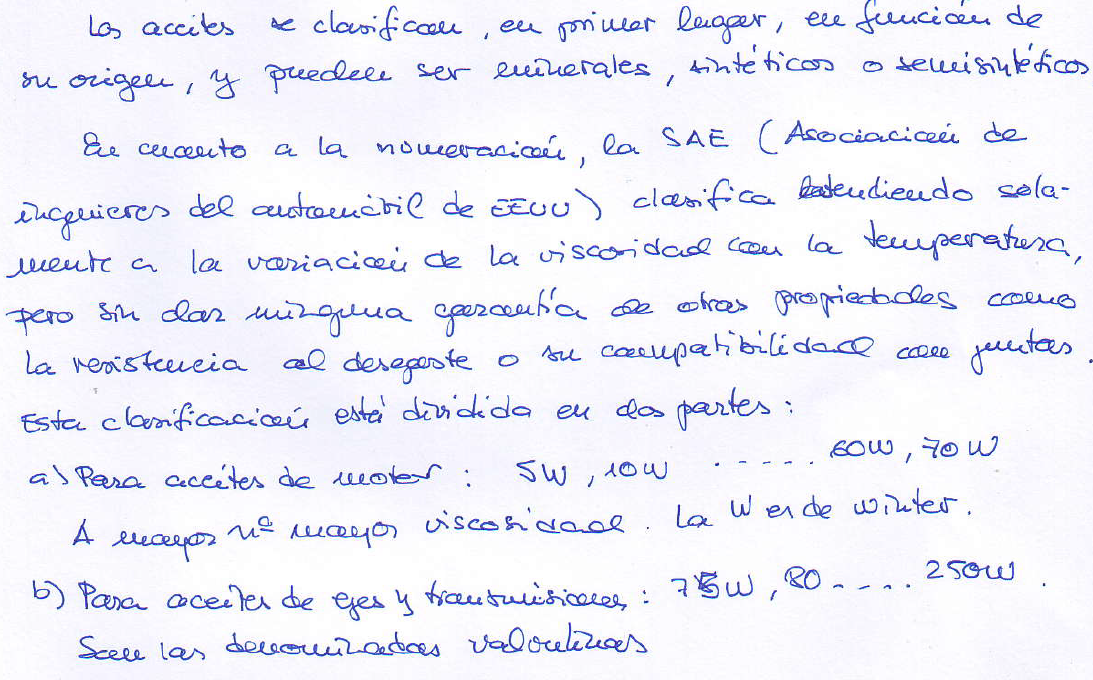 Los aceites se clasifican, en primer lugar, en función de
su origen, y pueden ser minerales, sintéticos o semisintéticos
En cuanto a la numeración, la SAE (Asociación de
ingenieros del automóvil de EEUU) clasifica atendiendo sola-
mente a la variación de la viscosidad con la temperatura,
pero sin dar ninguna garantía de otras propiedades como
la resistencia al desgaste o su compatibilidad con juntas.
Esta clasificación está dividida en dos partes:
a) Para aceites de motor: 5W, 10W ..... 60W, 70W
A mayor nº mayor viscosidad. La W es de winter.
b) Para aceites de ejes y transmisiones: 75W, 80 .... 250W.
Son las denominadas valvulinas